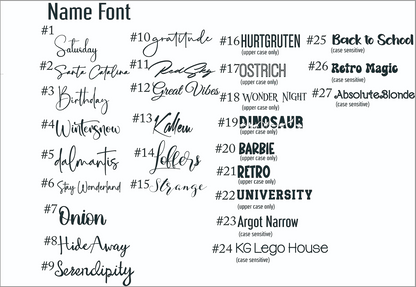 Name Font
#1 Saturday
#2 Santa Catalina
#3 Birthday
#4 Wintersnow
#5 dalmantis
#6 Stay Wonderland
#7 Onion
#8 HideAway
#9 Serendipity
#10 gratitude
#11 Red Sky
#12 Great Vibes
#13 Kallem
#14 Loffers
#15 Strange
#16 HURTGRUTEN
(upper case only)
#17 OSTRICH
(upper case only)
#18 WONDER NIGHT
(upper case only)
#19 DINOSAUR
(upper case only)
#20 BARBIE
(upper case only)
#21 RETRO
(upper case only)
#22 UNIVERSITY
(upper case only)
#23 Argot Narrow
(case sensitive)
#24 KG Lego House
(case sensitive)
#25 Back to School
(case sensitive)
#26 Retro Magic
(case sensitive)
#27 AbsoluteBlonde
(case sensitive)